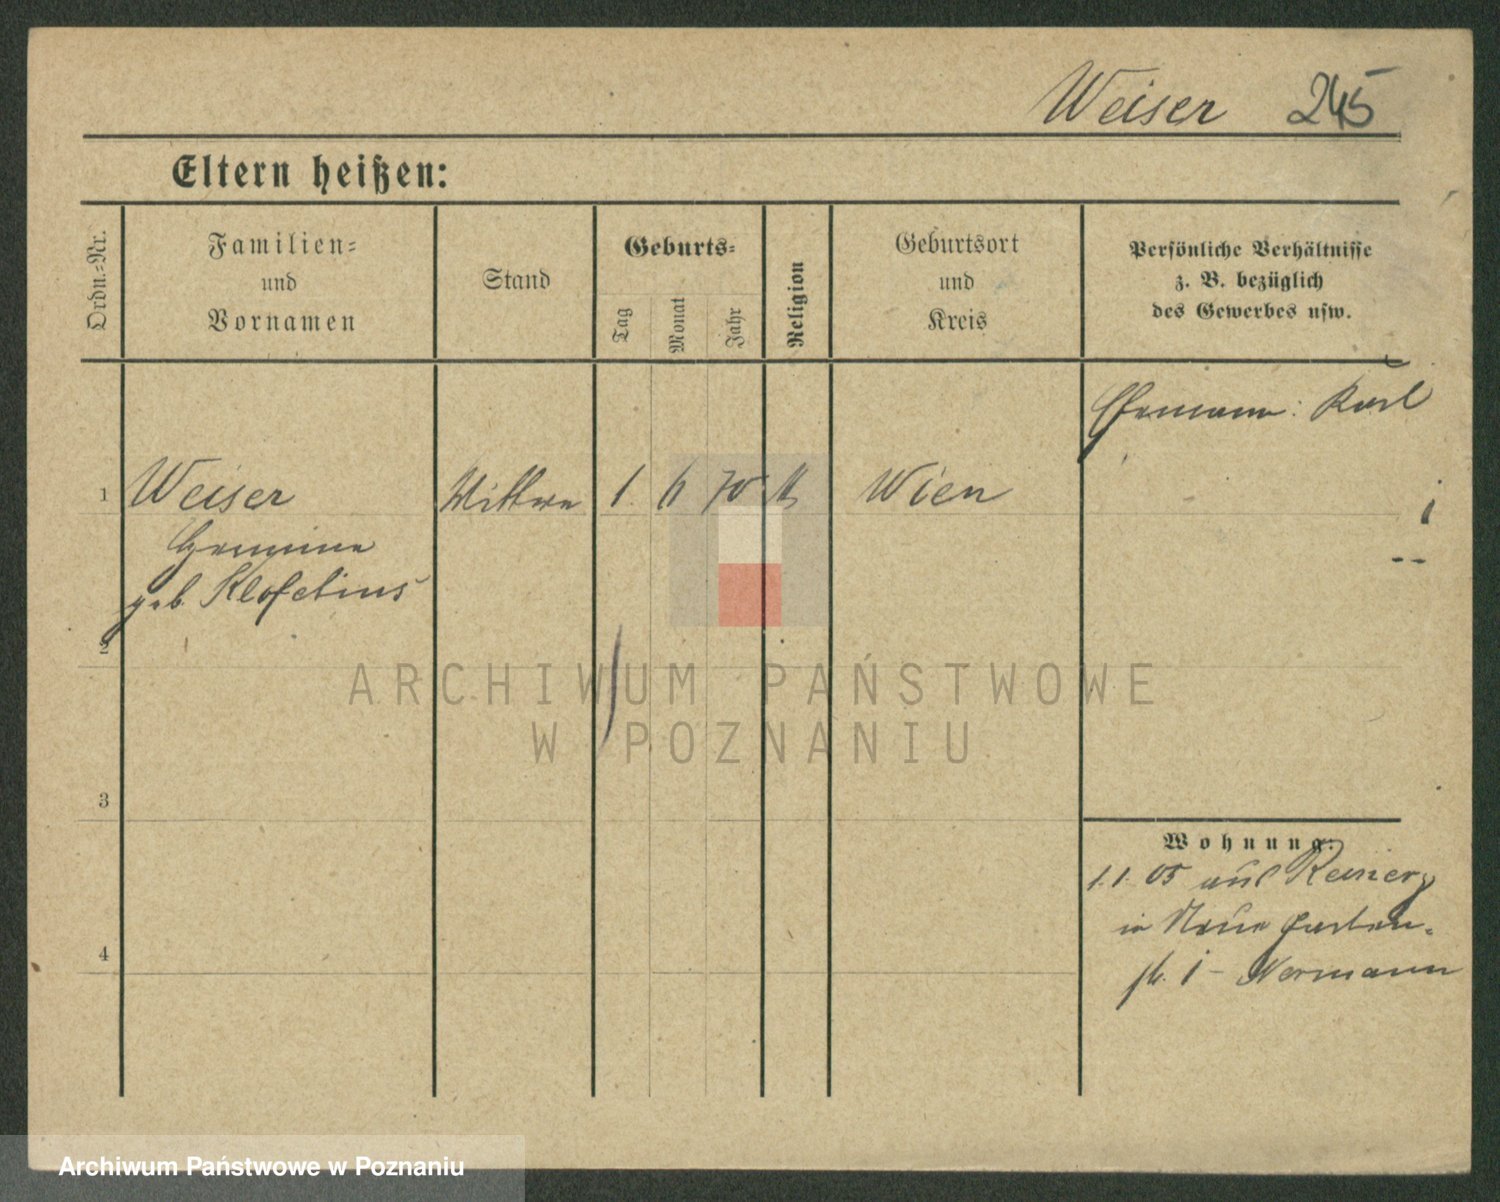 Weiser 245
Eltern heißen:
Ordn.=Nr.
Familien=
und
Vornamen
Stand
Geburts=
Tag
Monat
Jahr
Religion
Geburtsort
und
Kreis
Persönliche Verhältnisse
z. B. bezüglich
des Gewerbes usw.
Ehemann: Karl
1 Weiser Wittwe 1. 6 70 Wien
Hermine
geb.
2
3
4
Wohnung:
1. 1. 05 aus
in Neue Garten-
str. 1 - Normann
ARCHIWUM PAŃSTWOWE
W POZNANIU
Archiwum Państwowe w Poznaniu